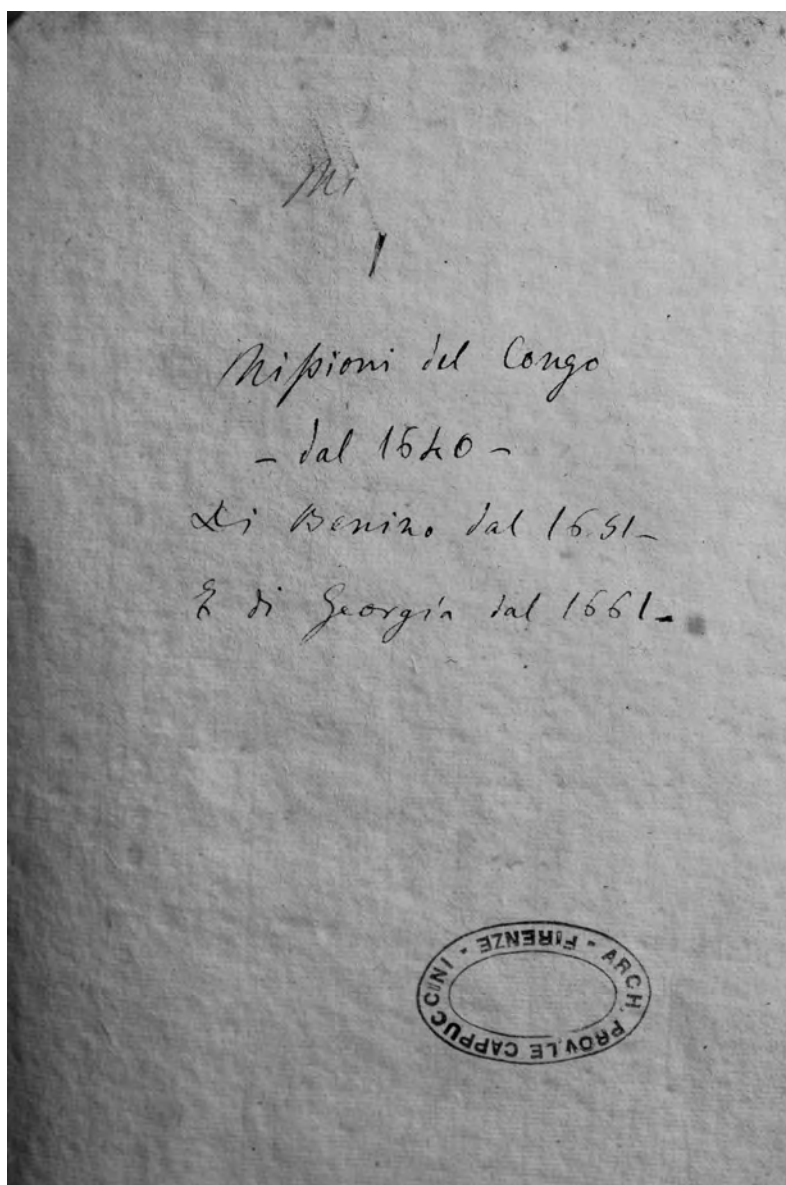 Mi
Missioni del Congo
- dal 1640 -
Di Benino dal 1651-
E di Georgia dal 1661-
ARCH. PROV.LE CAPPUCCINI - FIRENZE -